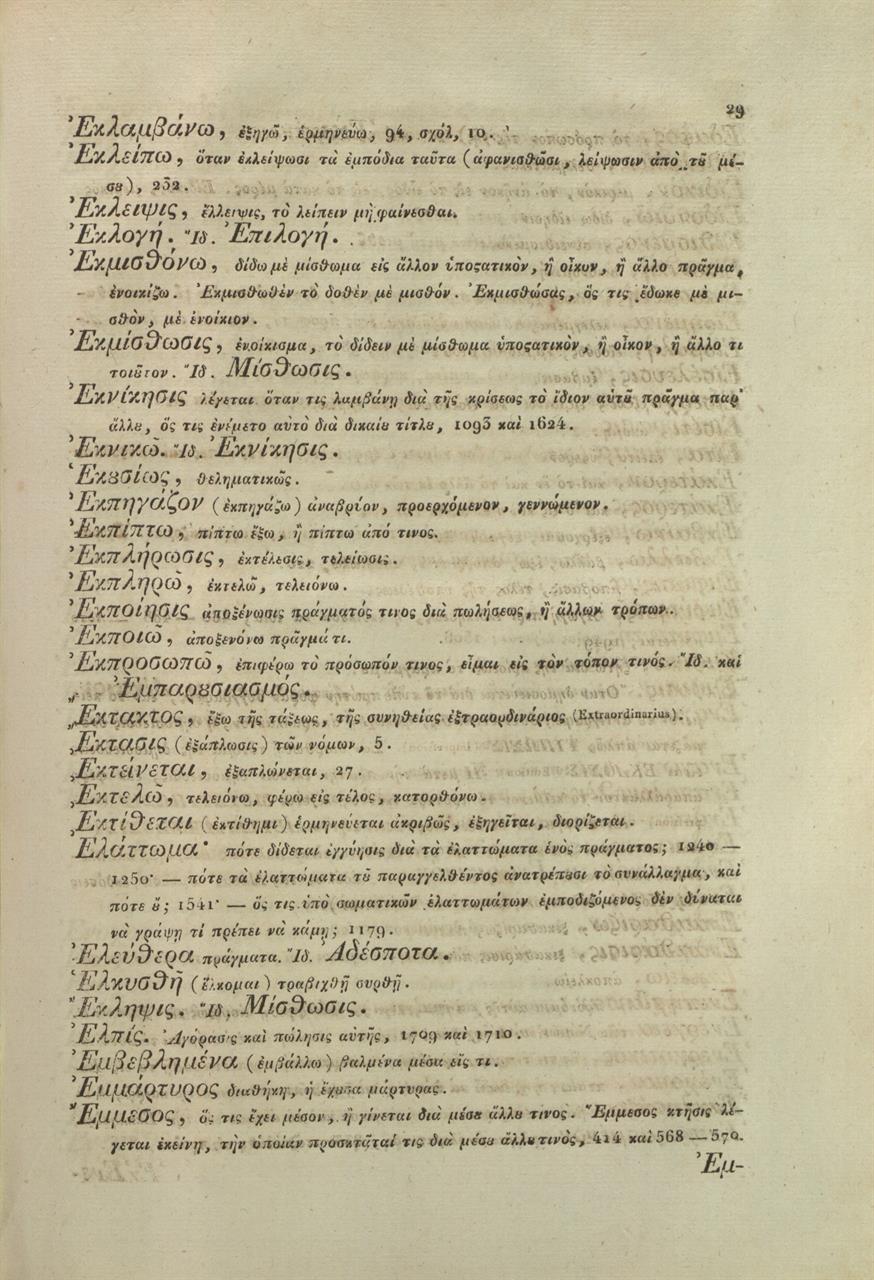 29
Ἐκλαμβάνω, ἐξηγῶ, ἑρμηνεύω, 94, σχόλ, 10.
Ἐκλείπω, ὅταν ἐκλείψωσι τὰ ἐμπόδια ταῦτα (ἀφανισθῶσι, λείψωσιν ἀπὸ τȣ͂ μέ-
σȣ), 252.
Ἔκλειψις, ἔλλειψις, τὸ λείπειν μὴ φαίνεσθαι.
Ἐκλογή. Ἴδ. Ἐπιλογή.
Ἐκμισθόνω, δίδω μὲ μίσθωμα εἰς ἄλλον ὑποϛατικὸν, ἢ οἶκον, ἢ ἄλλο πρᾶγμα,
ἐνοικίζω. Ἐκμισθωθὲν τὸ δοθὲν μὲ μισθόν. Ἐκμισθώσας, ὅς τις ἔδωκε μὲ μι-
σθὸν, μὲ ἐνοίκιον.
Ἐκμίσθωσις, ἐνοίκισμα, τὸ δίδειν μὲ μίσθωμα ὑποϛατικὸν, ἢ οἶκον, ἢ ἄλλο τι
τοιȣ͂τον. Ἴδ. Μίσθωσις.
Ἐκνίκησις λέγεται ὅταν τις λαμβάνῃ διὰ τῆς κρίσεως τὸ ἴδιον αὑτȣ͂ πρᾶγμα παρ᾽
ἄλλȣ, ὅς τις ἐνέμετο αὐτὸ διὰ δικαίȣ τίτλȣ, 1093 καὶ 1624.
Ἐκνικῶ. Ἴδ. Ἐκνίκησις.
Ἑκȣσίως, θεληματικῶς.
Ἐκπηγάζον (ἐκπηγάζω) ἀναβρίον, προερχόμενον, γεννώμενον.
Ἐκπίπτω, πίπτω ἔξω, ἢ πίπτω ἀπό τινος.
Ἐκπλήρωσις, ἐκτέλεσις, τελείωσις.
Ἐκπληρῶ, ἐκτελῶ, τελειόνω.
Ἐκποίησις ἀποξένωσις πράγματός τινος διὰ πωλήσεως, ἢ ἄλλων τρόπων.
Ἐκποιῶ, ἀποξενόνω πρᾶγμά τι.
Ἐκπροσωπῶ, ἐπιφέρω τὸ πρόσωπόν τινος, εἶμαι εἰς τὸν τόπον τινός. Ἴδ. καὶ
Ἐμπαρȣσιασμός.
Ἔκτακτος, ἔξω τῆς τάξεως, τῆς συνηθείας ἐξτραορδινάριος (Extraordinarius).
Ἔκτασις (ἐξάπλωσις) τῶν νόμων, 5.
Ἐκτείνεται, ἐξαπλώνεται, 27.
Ἐκτελῶ, τελειόνω, φέρω εἰς τέλος, κατορθόνω.
Ἐκτίθεται (ἐκτίθημι) ἑρμηνεύεται ἀκριβῶς, ἐξηγεῖται, διορίζεται.
Ἐλάττωμα· πότε δίδεται ἐγγύησις διὰ τὰ ἐλαττώματα ἑνὸς πράγματος; 1240 —
1250· — πότε τὰ ἐλαττώματα τȣ͂ παραγγελθέντος ἀνατρέπȣσι τὸ συνάλλαγμα, καὶ
πότε ȣ̓; 1541· — ὅς τις ὑπὸ σωματικῶν ἐλαττωμάτων ἐμποδιζόμενος δὲν δύναται
νὰ γράψῃ τί πρέπει νὰ κάμῃ; 1179.
Ἐλεύθερα πράγματα. Ἴδ. Ἀδέσποτα.
Ἑλκυσθῇ (ἕλκομαι) τραβιχθῇ συρθῇ.
Ἔκληψις. Ἴδ. Μίσθωσις.
Ἐλπίς. Ἀγόρασις καὶ πώλησις αὐτῆς, 1709 καὶ 1710.
Ἐμβεβλημένα (ἐμβάλλω) βαλμένα μέσα εἴς τι.
Ἐμμάρτυρος διαθήκη, ἡ ἔχȣσα μάρτυρας.
Ἔμμεσος, ὅς τις ἔχει μέσον, ἢ γίνεται διὰ μέσȣ ἄλλȣ τινος. Ἔμμεσος κτῆσις λέ-
γεται ἐκείνη, τὴν ὁποίαν προσκτᾶταί τις διὰ μέσȣ ἄλλȣ τινὸς, 414 καὶ 568 — 570.
Ἐμ-